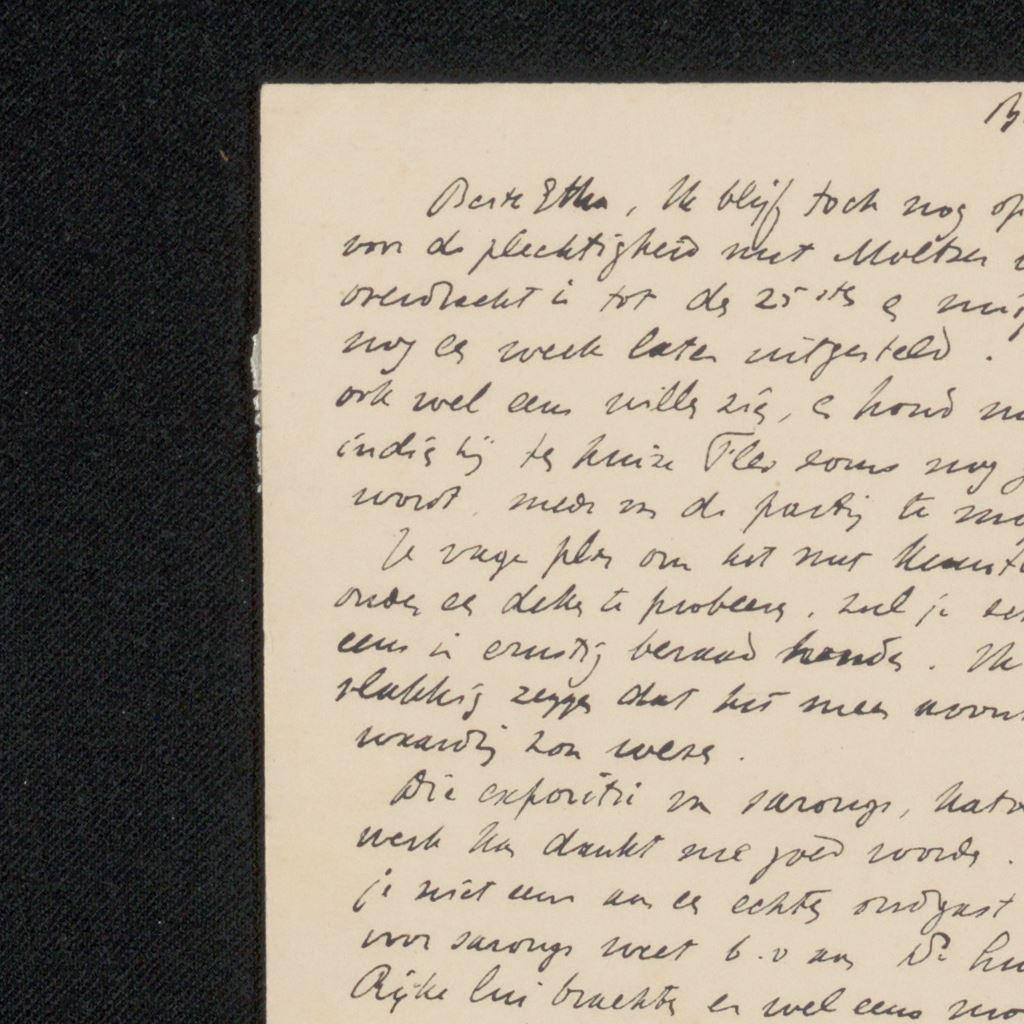 Beste Etha, Ik blijf toch nog op
voor de plechtigheid met Moltzer
overdracht is tot den 25sten en
nog een week later uitgesteld.
ook wel eens willen zien, en houd
indien hij ten huize Fles soms nog
wordt, mede van de partij te
Je vage plan om het met
onder een deken te probeeren, zul je
eens in ernstig beraad houden. Ik
vlakkig zeggen dat het meer
waardig zou wezen.
Die expositie van sarongs,
werk kan dunkt me goed worden.
je niet eens aan een echten oudgast
voor sarongs weet b.v aan De
Rijke lui brachten er wel eens